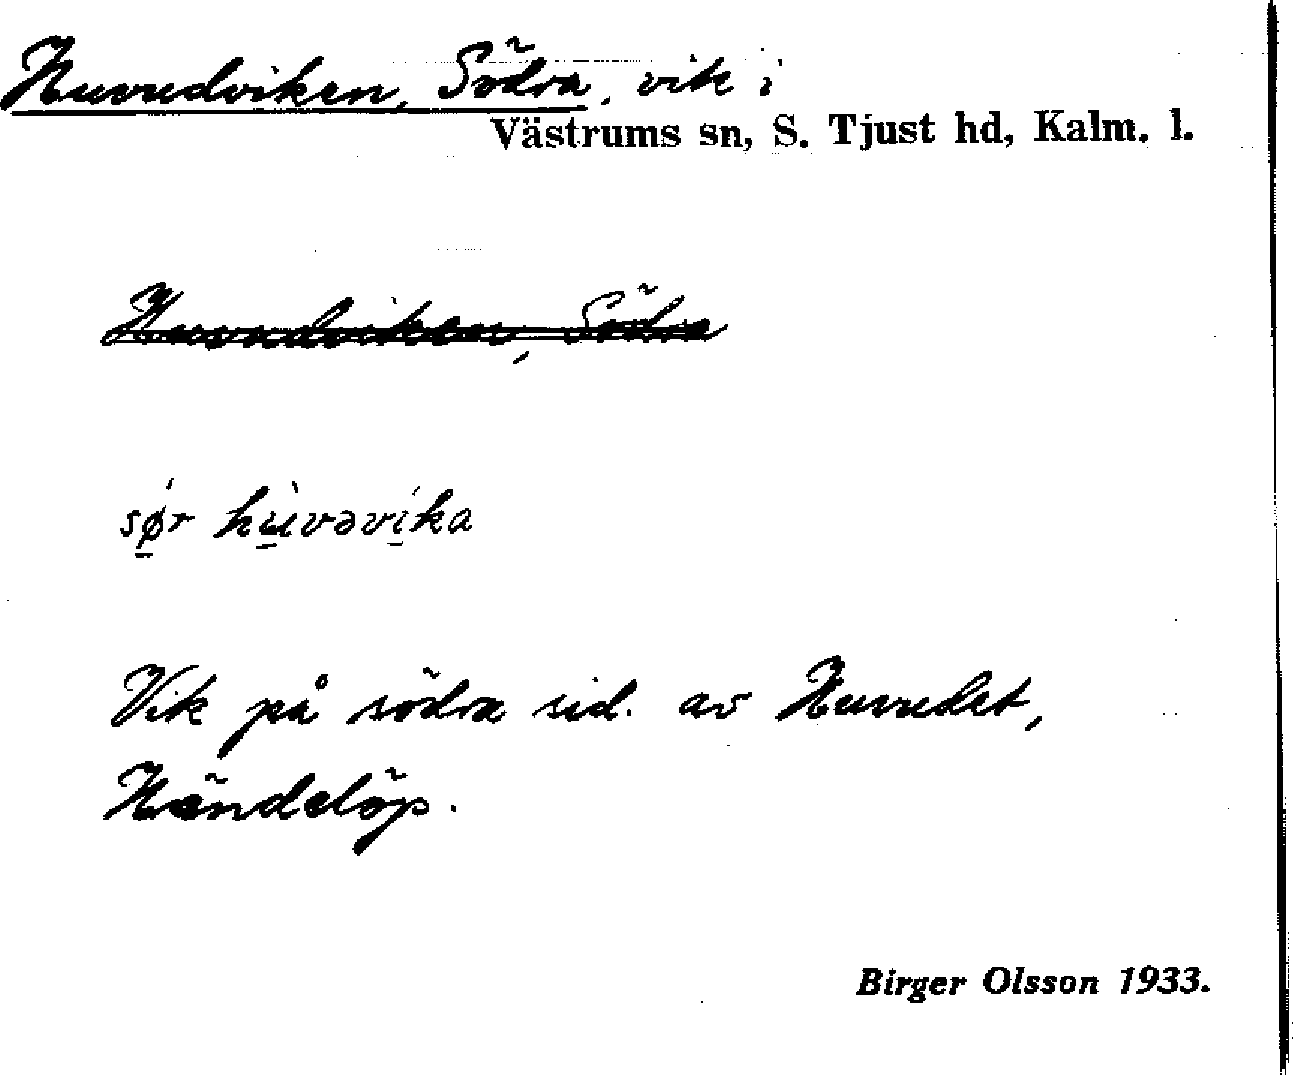 Huvudviken, Södra, vik i
Västrums sn, S. Tjust hd, Kalm. l.
Huvudviken, Södra
sǿ̱r hù̱vəví̱ka
Vik på södra sid. av Huvudet,
Händelöp.
Birger Olsson 1933.